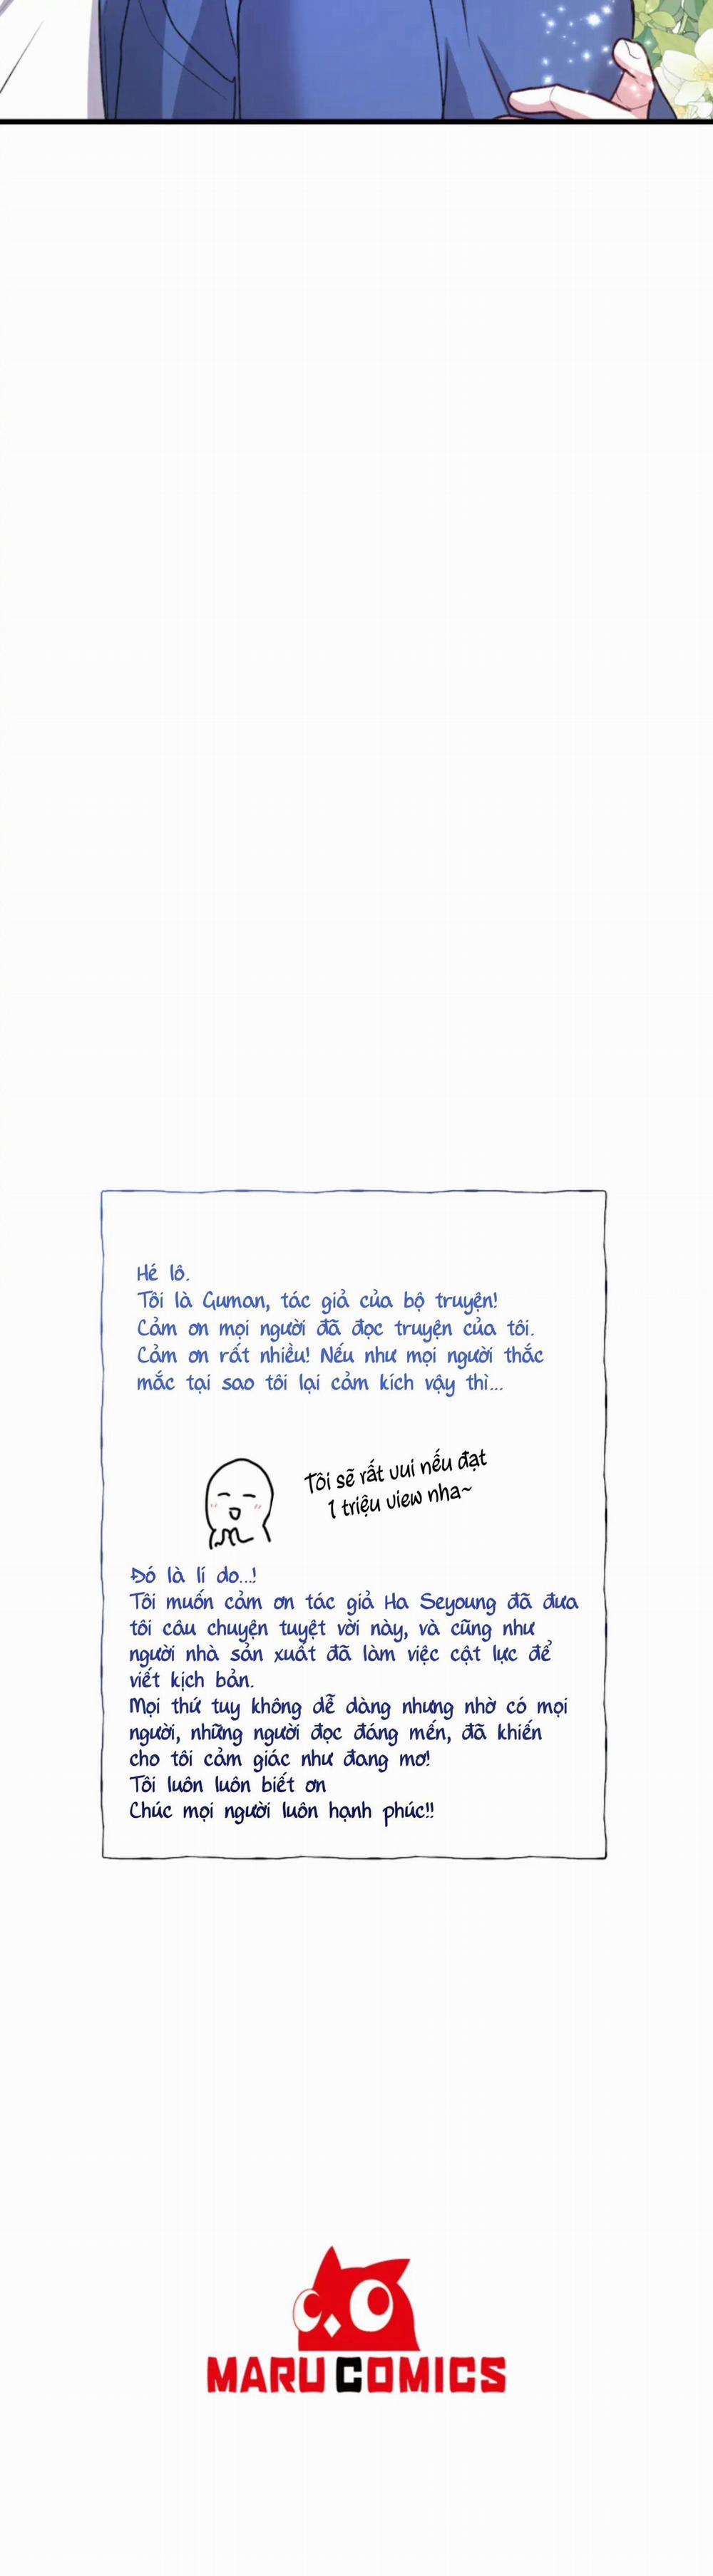 Hé lô.
Tôi là Guman, tác giả của bộ truyện!
Cảm ơn mọi người đã đọc truyện của tôi.
Cảm ơn rất nhiều! Nếu như mọi người thắc
mắc tại sao tôi lại cảm kích vậy thì...
Tôi sẽ rất vui nếu đạt
1 triệu view nha~
Đó là lí do...!
Tôi muốn cảm ơn tác giả Ha Seyoung đã đưa
tôi câu chuyện tuyệt vời này, và cũng như
người nhà sản xuất đã làm việc cật lực để
viết kịch bản.
Mọi thứ tuy không dễ dàng nhưng nhờ có mọi
người, những người đọc đáng mến, đã khiến
cho tôi cảm giác như đang mơ!
Tôi luôn luôn biết ơn
Chúc mọi người luôn hạnh phúc!!
MARU COMICS